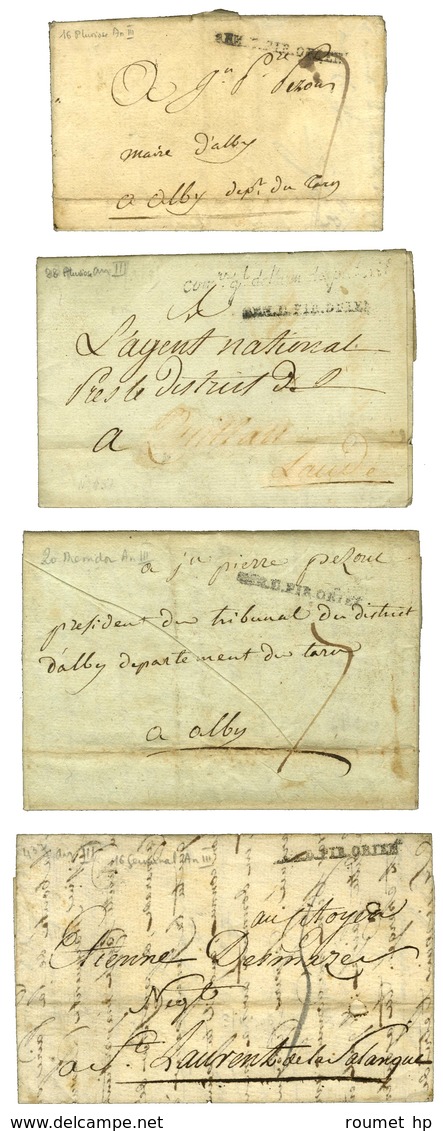 16 Pluviose An III
ARM.D.PIR.ORIEN
A jn Prre Pezous
maire d'alby
a alby dept du Tarn
7
28 Pluviose an III
ARM.D.PIR.ORIEN
L'agent national
Pres le district de
a Quillan
L'aude
20 Thermidor An III
a jn pierre pezous
ARM.D.PIR.ORIEN
president du tribunal du district
d'alby departement du tarn
7
a alby
16 Germinal An III
ARM.D.PIR.ORIEN
au Citoyen
Etienne Desmazes
Negt
a St Laurent de la Salanque
© delcampe.net
roumet hp